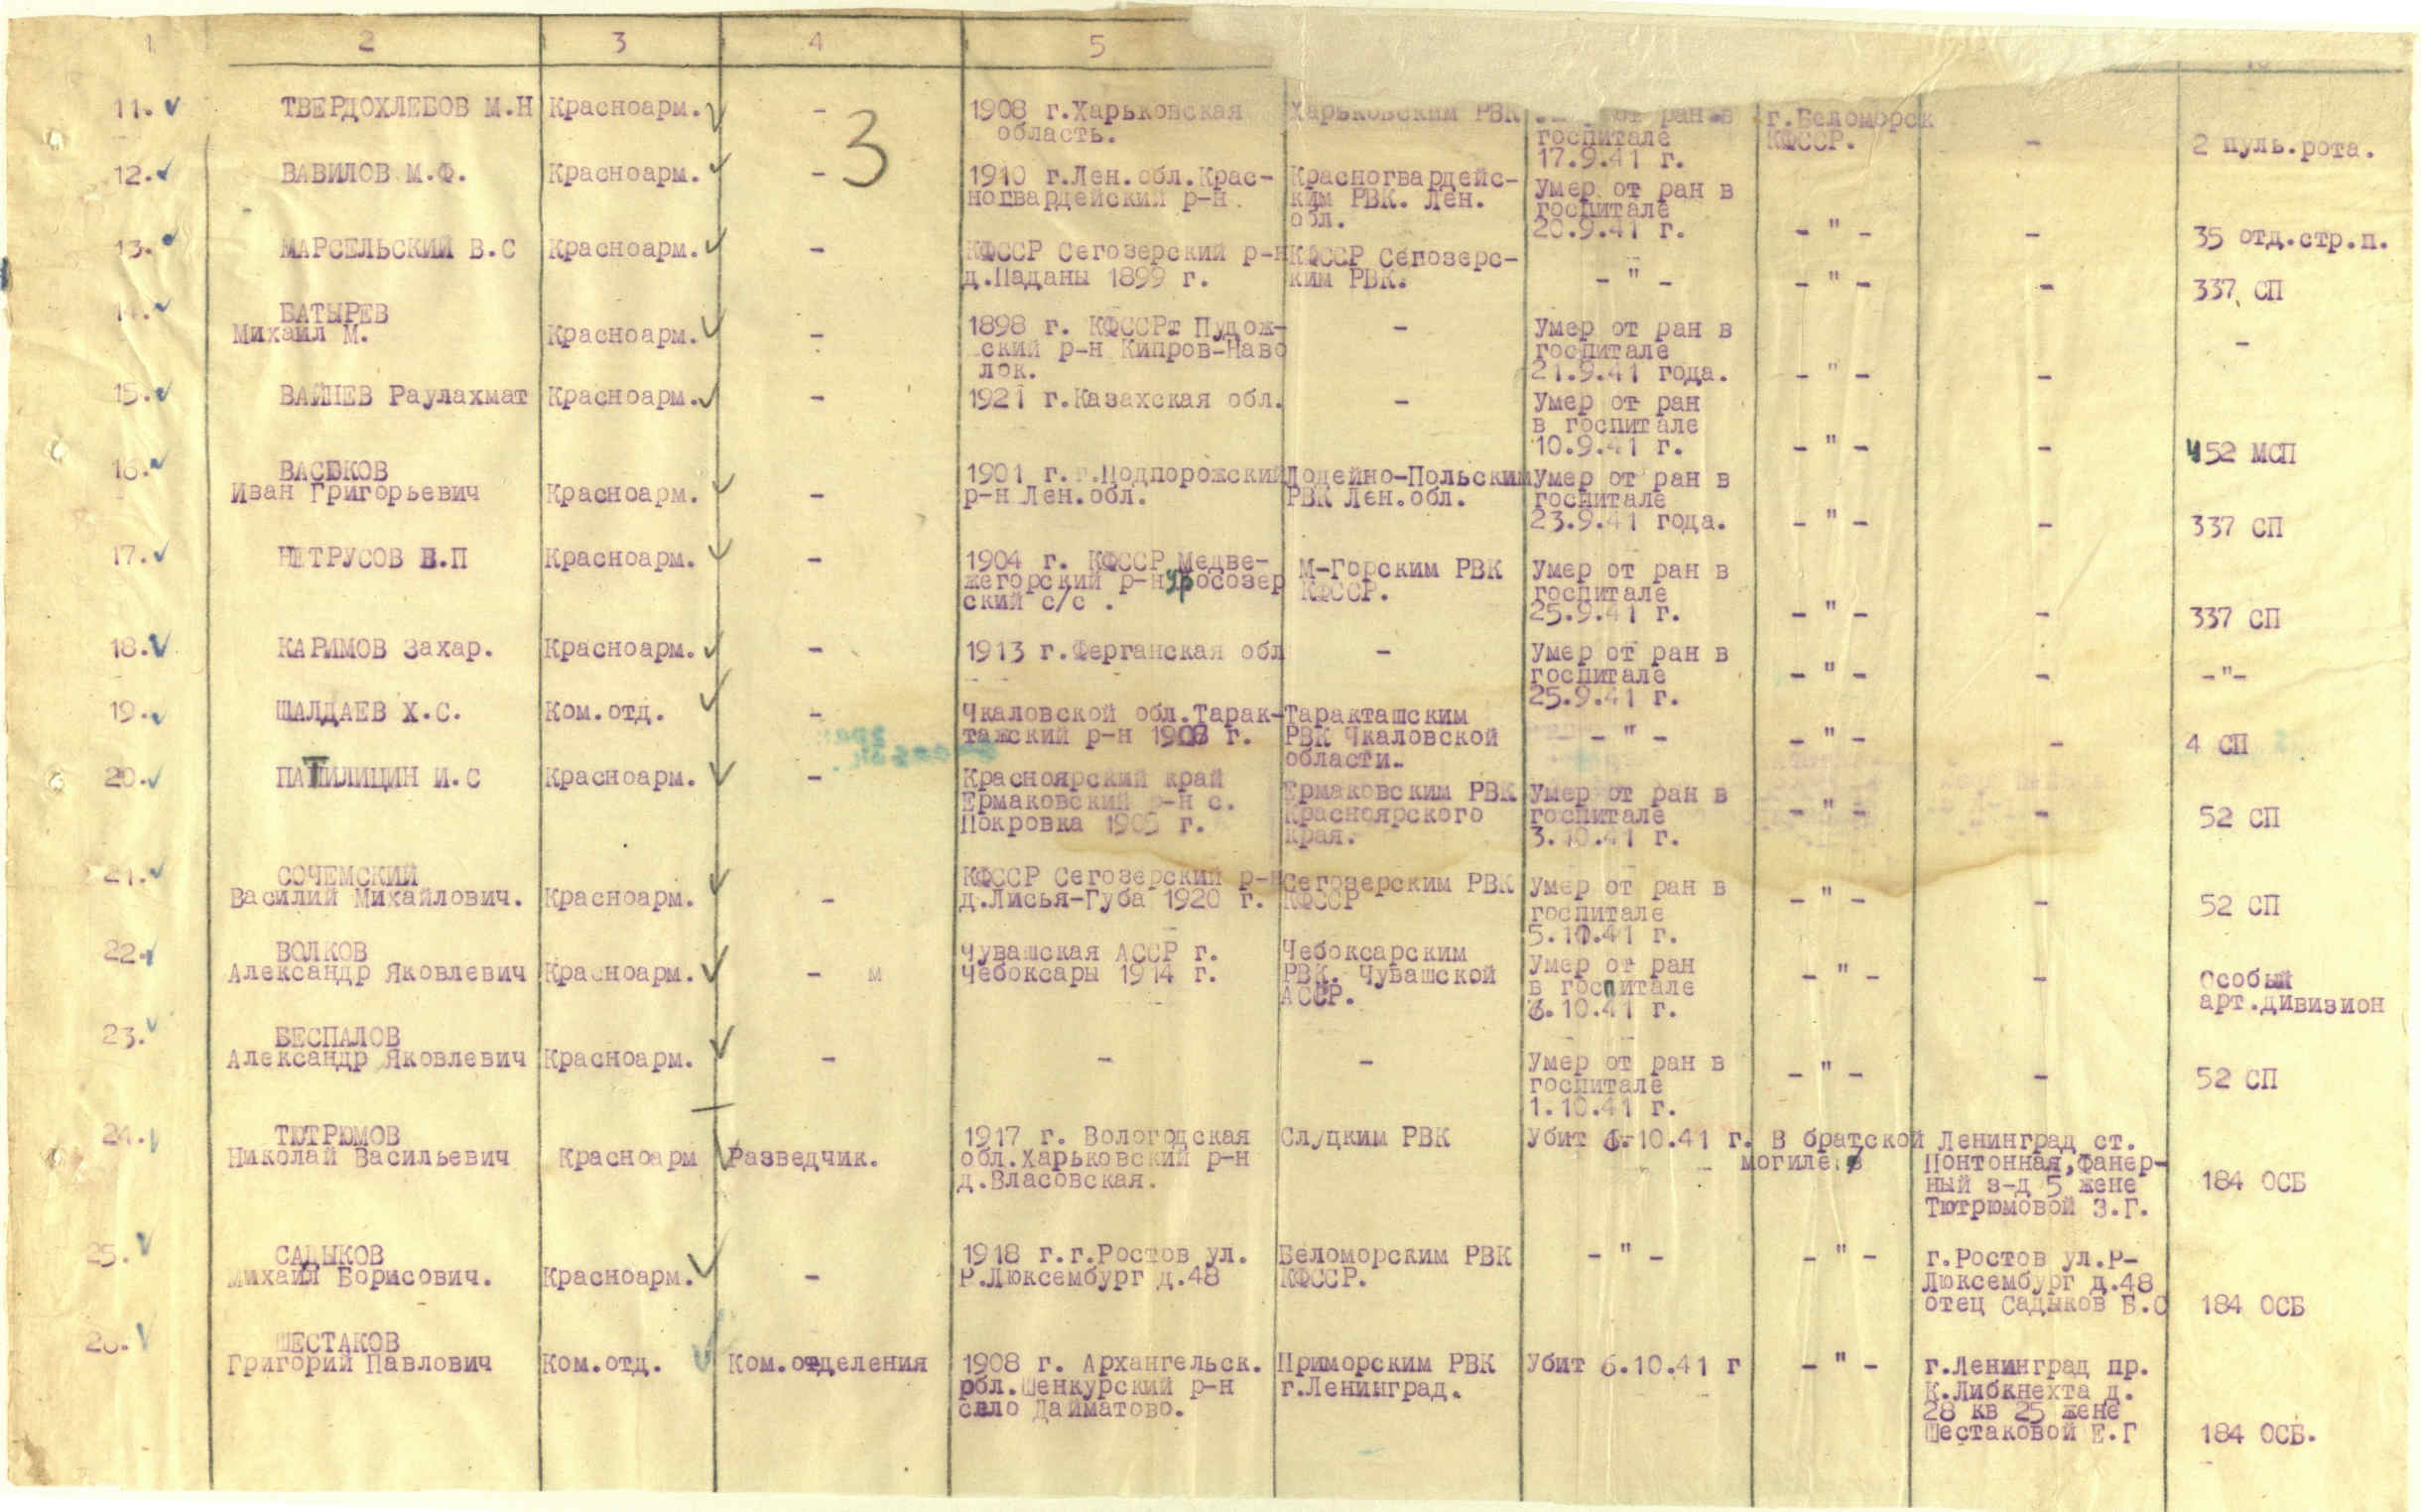 1 2 3 4 5
3
11. ТВЕРДОХЛЕБОВ М.Н Красноарм. - 1908 г.Харьковская Харьковским РВК от ран в г.Беломорск
область. госпитале КФССР. - 2 пуль.рота.
17.9.41 г.
12. ВАВИЛОВ М.Ф. Красноарм. - 1910 г.Лен.обл.Крас- Красногвардейс- Умер от ран в
ногвардейский р-н ким РВК. Лен. госпитале
обл. 20.9.41 г. - " - - 35 отд.стр.п.
13. МАРСЕЛЬСКИЙ В.С Красноарм. - КФССР Сегозерский р-н КФССР Сегозерс-
д.Паданы 1899 г. ким РВК. - " - - " - - 337 СП
14. БАТЫРЕВ
Михаил М. Красноарм. - 1898 г. КФССР Пудож- - Умер от ран в -
ский р-н Кипров-Наво госпитале
лок. 21.9.41 года. - " - -
15. ВАЙНЕВ Раулахмат Красноарм. - 1921 г.Казахская обл. - Умер от ран
в госпитале
10.9.41 г. - " - - 452 МСП
16. ВАСЮКОВ
Иван Григорьевич Красноарм. - 1901 г. Подпорожский Лодейно-Польским Умер от ран в
р-н Лен.обл. РВК Лен.обл. госпитале
23.9.41 года. - " - - 337 СП
17. НЕТРУСОВ В.П Красноарм. - 1904 г. КФССР Медве- М-Горским РВК Умер от ран в
жегорский р-н Уросозер КФССР. госпитале
ский с/с . 25.9.41 г. - " - - 337 СП
18. КАРИМОВ Захар. Красноарм. - 1913 г.Ферганская обл - Умер от ран в
госпитале - " - - -"-
25.9.41 г.
19. ШАЛДАЕВ Х.С. Ком.отд. - Чкаловской обл.Тарак- Таракташским
ташский р-н 1908 г. РВК Чкаловской - " - - " - - 4 СП
области.
20. ПАТИЛИЦИН И.С Красноарм. - Красноярский край Ермаковским РВК Умер от ран в
Ермаковский р-н с. Красноярского госпитале - " - - 52 СП
Покровка 1905 г. края. 3.10.41 г.
21. СОЧЕМСКИЙ
Василий Михайлович. Красноарм. - КФССР Сегозерский р-н Сегозерским РВК Умер от ран в
д.Лисья-Губа 1920 г. КФССР госпитале - " - - 52 СП
5.10.41 г.
22. ВОЛКОВ
Александр Яковлевич Красноарм. - м Чувашская АССР г. Чебоксарским Умер от ран
Чебоксары 1914 г. РВК. Чувашской в госпитале - " - - Особый
АССР. 6.10.41 г. арт.дивизион
23. БЕСПАЛОВ
Александр Яковлевич Красноарм. - - - Умер от ран в - " - - 52 СП
госпитале
1.10.41 г.
24. ТЮТРЮМОВ
Николай Васильевич Красноарм Разведчик. 1917 г. Вологодская Слуцким РВК Убит 6.10.41 г. В братской Ленинград ст.
обл.Харьковский р-н могиле Понтонная,фанер-
д.Власовская. ный з-д 5 жене 184 ОСБ
Тютрюмовой З.Г.
25. САДЫКОВ
Михаил Борисович. Красноарм. - 1918 г.г.Ростов ул. Беломорским РВК - " - - " - г.Ростов ул.Р-
Р.Люксембург д.48 КФССР. Люксембург д.48
отец Садыков Б.С 184 ОСБ
26. ШЕСТАКОВ
Григорий Павлович Ком.отд. Ком.отделения 1908 г. Архангельск. Приморским РВК Убит 6.10.41 г - " - г.Ленинград пр.
обл.Шенкурский р-н г.Ленинград. К.Либкнехта д.
село Дайматово. 28 кв 25 жене
Шестаковой Е.Г 184 ОСБ.